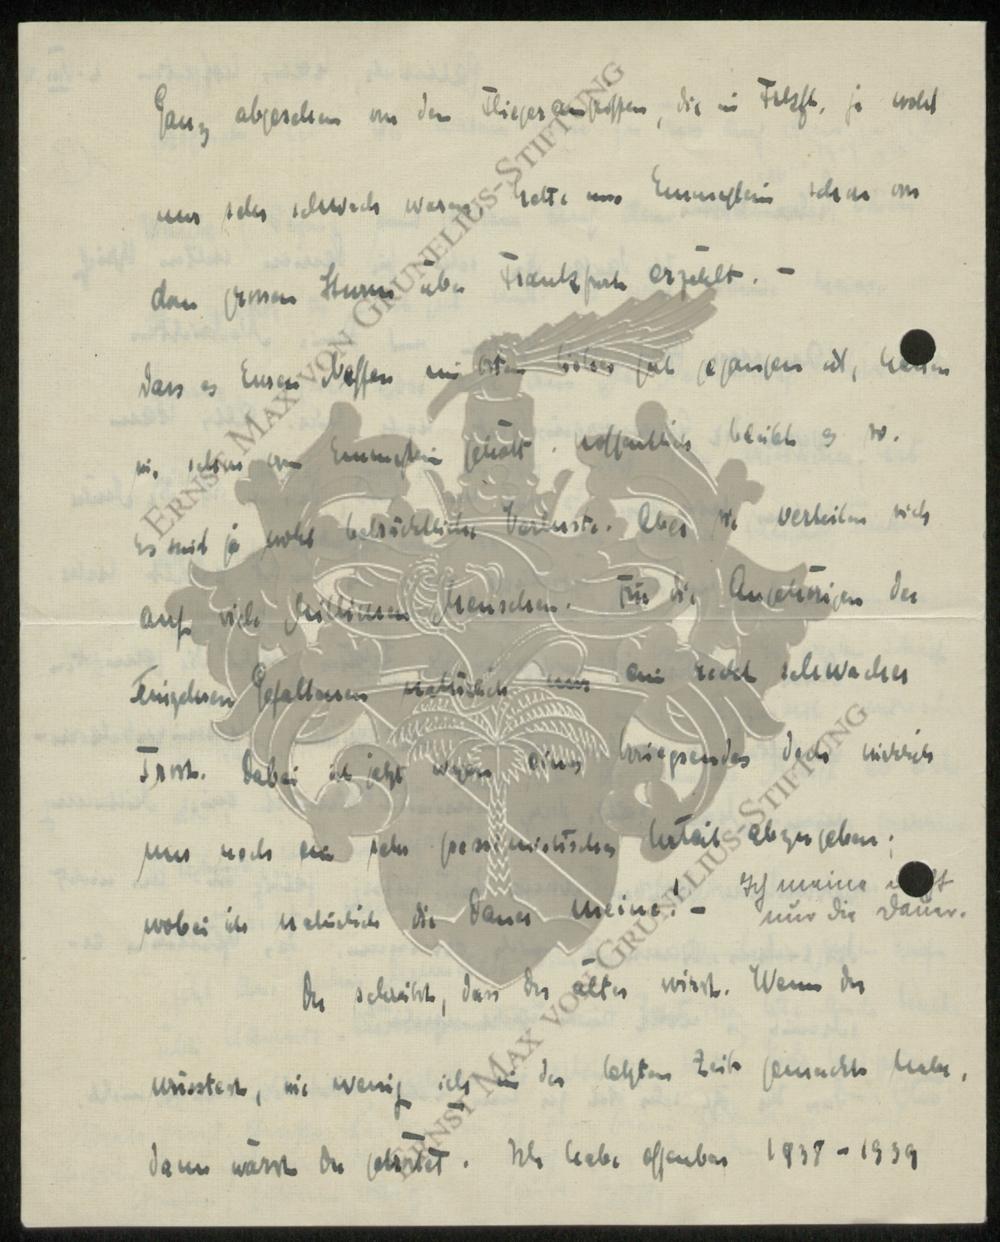 Ganz abgesehen von den Fliegerangriffen, die in Frkft. ja wohl
nur sehr schwach waren hatte uns schon von
dem grossen Sturm über Frankfurt erzählt. –
Dass es Euren Neffen im Osten bisher gut gegangen ist, hatten
wir schon von gehört. Hoffentlich bleibt es so.
Es sind ja wohl beträchtliche Verluste. Aber sie verteilen sich
auf viele Millionen Menschen. Für die Angehörigen der
Einzelnen Gefallenen natürlich nur ein recht schwacher
Trost. Dabei ich jetzt wegen eines Kriegsendes doch wirklich
nur noch ein sehr pessimistisches Urteil abzugeben;
wobei ich natürlich die Dauer meine! –
Ich meine nicht
nur die Dauer.
Du schreibst, dass Du älter wirst. Wenn Du
wüsstest, wie wenig ich in der letzten Zeit gemacht habe,
dann wärst Du getröstet. Ich habe offenbar 1938 – 1939
ERNST MAX VON GRUNELIUS-STIFTUNG
ERNST MAX VON GRUNELIUS-STIFTUNG